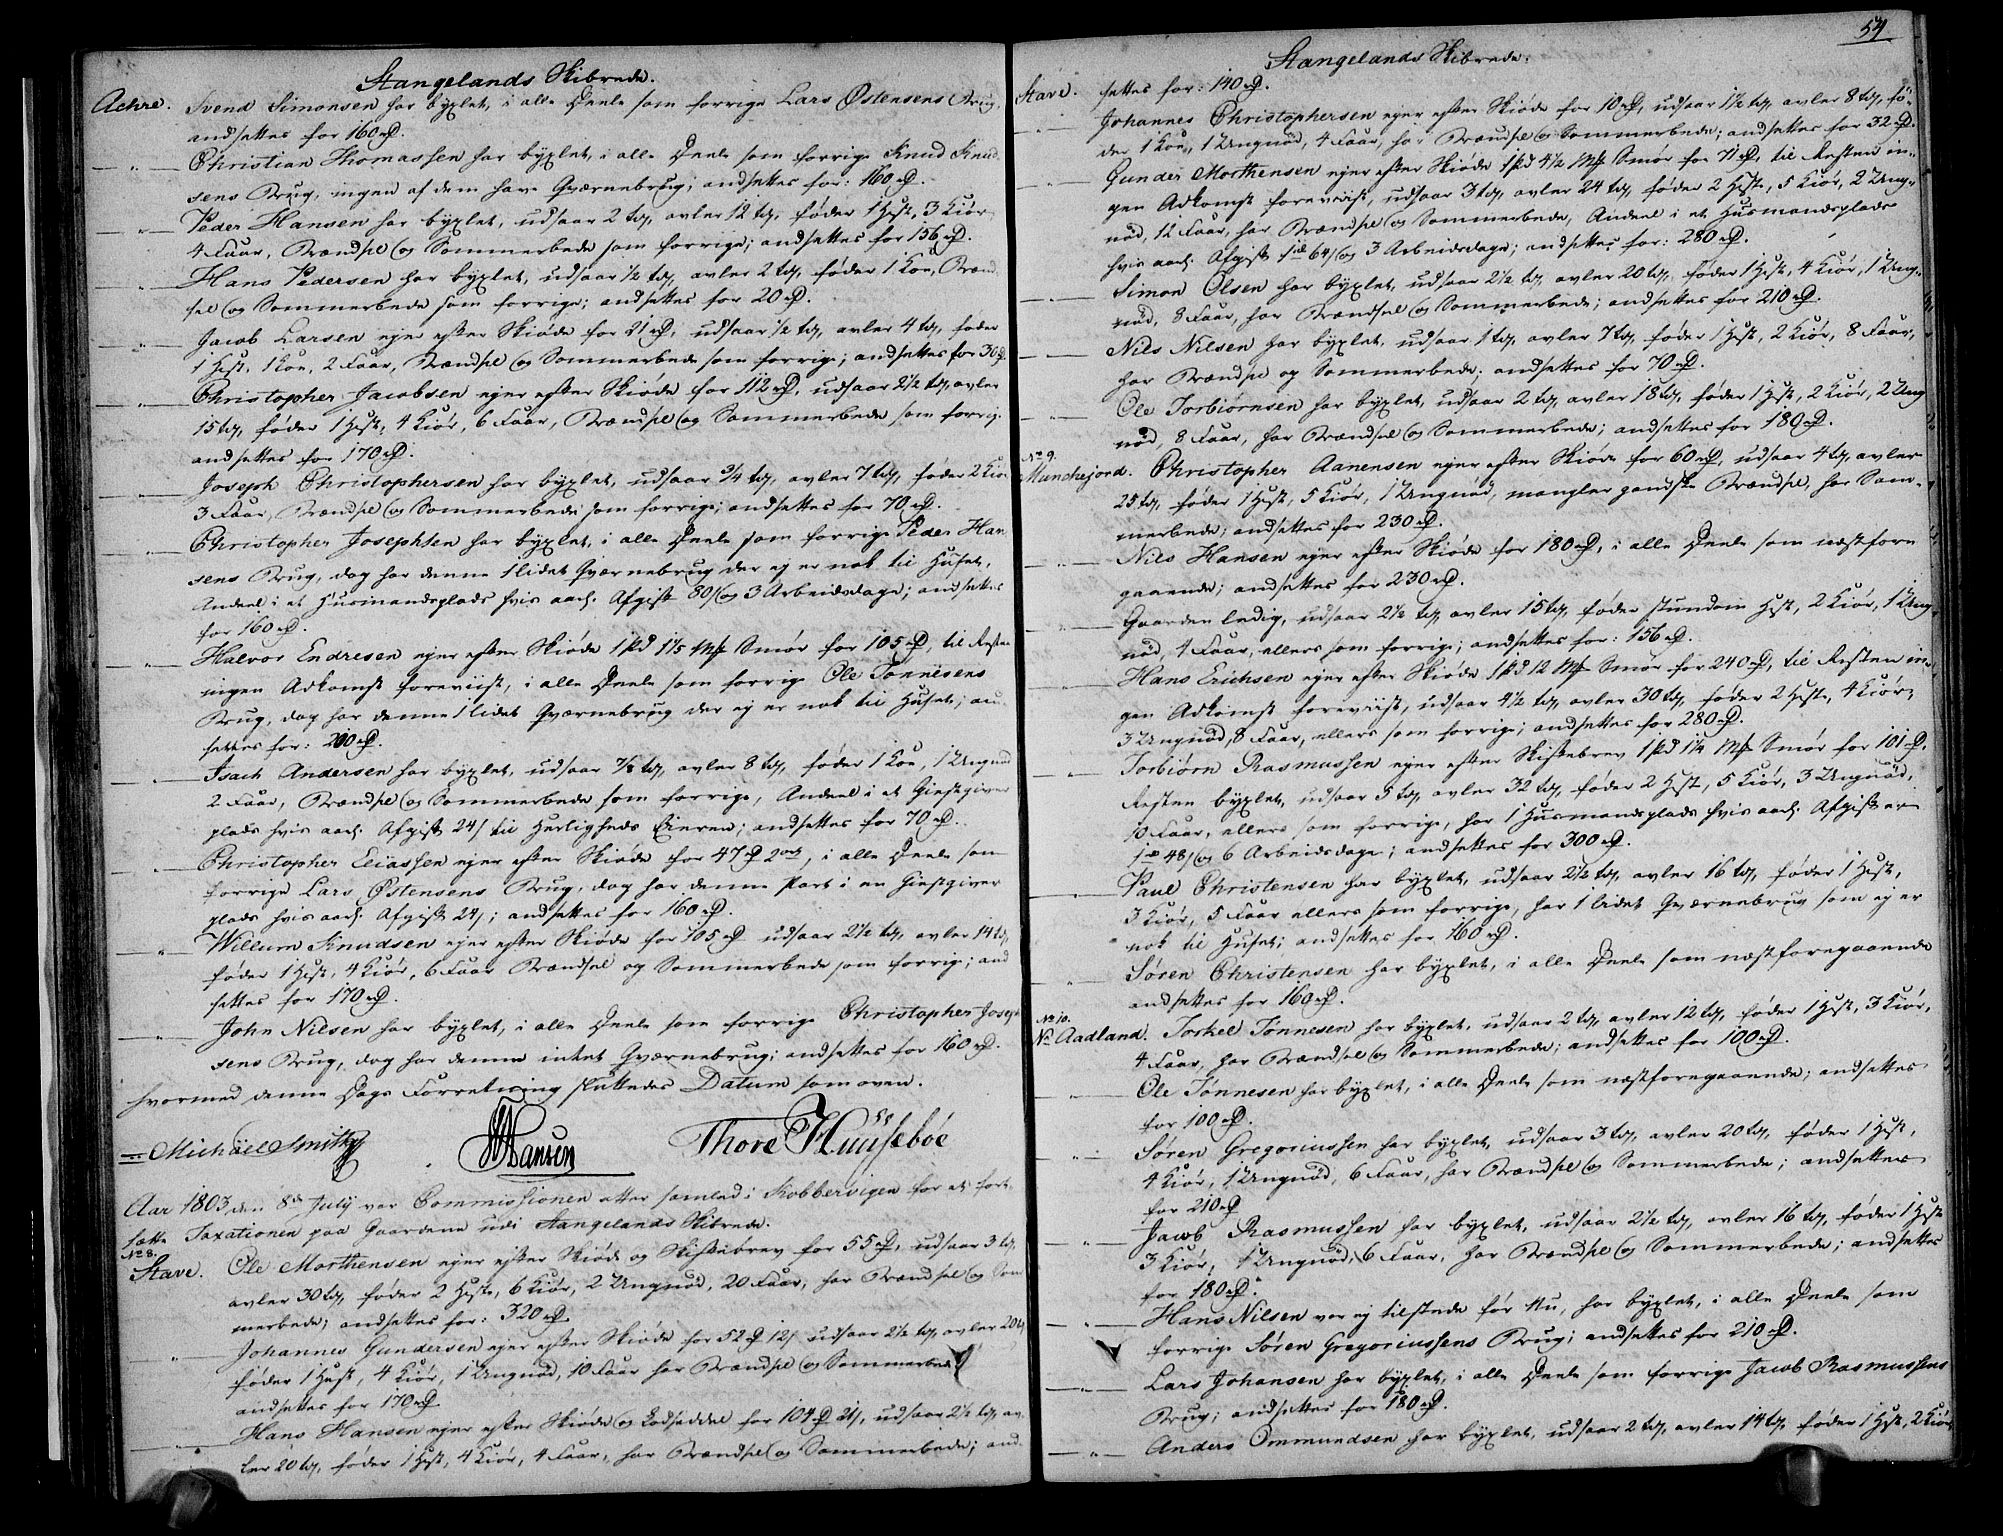 Stangelands Skibrede.
Achre. Svend Simonsen har byxlet, i alle Deele som forrige Lars Østensens Brug,
andsettes for 160 rD.
Christian Thomassen har byxlet, i alle Deele som forrige Knud Knud-
sens Brug, ingen af dem have Qværnebrug; andsettes for: 160 rD.
Peder Hansen har byxlet, udsaar 2 td, avler 12 td, føder 1 Hest, 3 Kiør
4 Faar, Brændsel og Sommerbede som forrige; andsettes for 156 rD.
Hans Pedersen har byxlet, udsaar 1/2 td, avler 2 td, føder 1 Koe, Brænd-
sel og Sommerbede som forrige; andsettes for 20 rD.
Jacob Larsen ejer efter Skiøde for 21 rD, udsaar 1/2 td, avler 4 td, føder
1 Hest, 1 Koe, 2 Faar, Brændsel og Sommerbede som forrige; andsettes for 30 rD.
Christopher Jacobsen ejer efter Skiøde for 112 rD, udsaar 2 1/2 td, avler
15 td, føder 1 Hest, 4 Kiør, 6 Faar, Brændsel og Sommerbede som forrig.
andsettes for 170 rD.
Joseph Christophersen har byxlet, udsaar 3/4 td, avler 7 td, føder 2 Kiør
3 Faar, Brændsel og Sommerbede som forrige; andsettes for 70 rD.
Christopher Josephsen har byxlet, i alle Deele som forrige Peder Han-
sens Brug, dog har denne 1 lidet Qværnebrug der ej er nok til Huset,
Andeel i et Husmandsplads hvis aarl. Afgift 80 s og 3 Arbeidsdage; andsettes
for 160 rD.
Halvor Endresen ejer efter Skiøde 1 pd 15 mk Smør for 105 rD, til Resten
ingen Adkomst foreviist, i alle Deele som forrige Ole Tønnesens
Brug, dog har denne 1 lidet Qværnebrug der ej er nok til Huset; an-
settes for: 200 rD.
Isach Andersen har byxlet, udsaar 7/8 td, avler 8 td, føder 1 Koe, 1 Ungnød
2 Faar, Brændsel og Sommerbede som forrige, Andeel i et Giestgiver
plads hvis aarl. Afgift 24 s til Herligheds Eieren; andsettes for 70 rD.
Christopher Eliassen ejer efter Skiøde for 47 rD 2 ort, i alle Deele som
forrige Lars Østensens Brug, dog har denne Part i en Giestgiver
plads hvis aarl. Afgift 24 s; andsettes for 160 rD.
Willum Knudsen ejer efter Skiøde for 105 rD udsaar 2 1/2 td, avler 14 td,
føder 1 Hest, 4 Kiør, 6 Faar Brændsel og Sommerbede som forrige; and
settes for 170 rD.
John Nilsen har byxlet, i alle Deele som forrige Christopher Joseph
sens Brug, dog har denne intet Qværnebrug; andsettes for 160 rD.
hvormed denne Dags Forretning sluttedes Datum som oven.
Michäel Smith Hansen Thore Huusebøe
Aar 1803, den 8de July var Commissionen atter samlad i Kobbervigen for at fort-
sætte Taxationen paa Gaardene udi Stangelands Skibrede.
No 8.
Stave. Ole Morthensen ejer efter Skiøde og Skiftebrev for 55 rD, udsaar 3 td,
avler 30 td, føder 2 Heste, 6 Kiør, 2 Ungnød, 20 Faar, har Brændsel og Som
merbede; andsettes for: 320 rD.
Johannes Gundersen ejer efter Skiøde for 52 rD 12 s udsaar 2 1/2 td, avler 20 td,
føder 1 Hest, 4 Kiør, 1 Ungnød, 10 Faar har Brændsel og Sommerbede
andsettes for 170 rD
Hans Hansen ejer efter Skiøde og Lodseddel for 104 rD 21 s, udsaar 2 1/2 td, av-
ler 20 td, føder 1 Hest, 4 Kiør, 4 Faar, har Brændsel og Sommerbede; and-
54
Stangelands Skibrede.
Stave. settes for: 140 rD.
Johannes Christophersen ejer efter Skiøde for 10 rD, udsaar 1 1/2 td, avler 8 td, fø-
der 1 Koe, 1 Ungnød, 4 Faar, har Brændsel og Sommerbede; andsettes for 32 rD.
Gunder Morthensen ejer efter Skiøde 1 pd 4 1/2 mk Smør for 71 rD, til Resten in-
gen Adkomst foreviist, udsaar 3 td, avler 24 td, føder 2 Heste, 5 Kiør, 2 Ung-
nød, 12 Faar, har Brændsel og Sommerbede, Andeel i et Husmandsplads
hvis aarl. Afgift 64 s og 3 Arbeidsdage; andsettes for: 280 rD.
Simon Olsen har byxlet, udsaar 2 1/2 td, avler 20 td, føder 1 Hest, 4 Kiør, 1 Ung-
nød, 8 Faar, har Brændsel og Sommerbede; andsettes for 210 rD.
Nils Nilsen har byxlet, udsaar 1 td, avler 7 td, føder 1 Hest, 2 Kiør, 8 Faar,
har Brændsel og Sommerbede; andsettes for 70 rD.
Ole Torbiørnsen har byxlet, udsaar 2 td, avler 18 td, føder 1 Hest, 2 Kiør, 2 Ung
nød, 8 Faar, har Brændsel og Sommerbede; andsettes for 180 rD.
No 9.
Munchejord. Christopher Aanensen ejer efter Skiøde for 60 rD, udsaar 4 td, avler
25 td, føder 1 Hest, 5 Kiør, 1 Ungnød, mangler gandske Brændsel, har Som-
merbede; andsettes for 230 rD.
Nils Hansen ejer efter Skiøde for 180 rD, i alle Deele som næstfore
gaaende; andsettes for 230 rD.
Gaarden ledig, udsaar 2 1/2 td, avler 15 td, føder stundom Hest, 2 Kiør, 1 Ung
nød, 4 Faar, ellers som forrige; andsettes for: 156 rD.
Hans Erichsen ejer efter Skiøde 1 pd 12 mk Smør for 240 rD, til Resten in-
gen Adkomst foreviist, udsaar 4 1/2 td, avler 30 td, føder 2 Heste, 4 Kiør,
3 Ungnød, 8 Faar, ellers som forrige; andsettes for 280 rD.
Torbiørn Rasmussen ejer efter Skiftebrev 1 pd 1 1/2 mk Smør for 101 rD,
Resten byxlet, udsaar 5 td, avler 32 td, føder 2 Hest, 5 Kiør, 3 Ungnød,
10 Faar, ellers som forrige, har 1 Husmandsplads hvis aarl. Afgift er
48 s og 6 Arbeidsdage; andsettes for 300 rD.
Paul Christensen har byxlet, udsaar 2 1/2 td, avler 16 td, føder 1 Hest,
3 Kiør, 5 Faar ellers som forrige, har 1 lidet Qværnebrug som ej er
nok til Huset; andsettes for 160 rD.
Søren Christensen har byxlet, i alle Deele som næstforegaaende
andsettes for 160 rD.
No 10.
Nr Aadland. Torkel Tønnesen har byxlet, udsaar 2 td, avler 12 td, føder 1 Hest, 3 Kiør,
4 Faar, har Brændsel og Sommerbede; andsettes for 100 rD.
Ole Tønnesen har byxlet, i alle Deele som næstforegaaende; andsettes
for 100 rD.
Søren Gregoriussen har byxlet, udsaar 3 td, avler 20 td, føder 1 Hest,
4 Kiør, 1 Ungnød, 6 Faar, har Brændsel og Sommerbede; andsettes
for 210 rD
Jacob Rasmussen har byxlet, udsaar 2 1/2 td, avler 16 td, føder 1 Hest
3 Kiør, 1 Ungnød, 6 Faar, har Brændsel og Sommerbede; andsettes
for 180 rD.
Hans Nilsen var ej tilstede før Nu, har byxlet, i alle Deele som
forrige Søren Gregoriussens Brug; andsettes for 210 rD.
Lars Johansen har byxlet, i alle Deele som forrige Jacob Rasmussens
Brug; andsettes for 180 rD.
Anders Ommundsen har byxlet, udsaar 2 td, avler 14 td, føder 1 Hest, 2 Kiør,